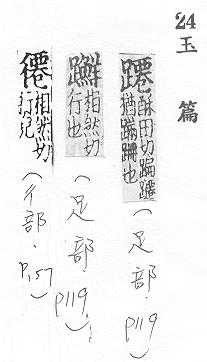 24 玉篇
蹮 酥田切蹁蹮
猶蹣跚也
(足部. p119)
相然切
行也
(足部 p119.)
相然切
行皃
(彳部. p.157)